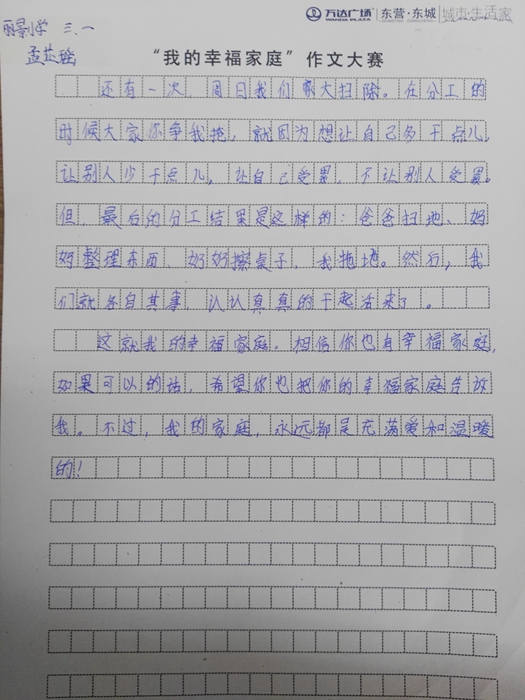 丽景小学 三.一
万达广场 WANDA PLAZA 东营·东城 城市·生活家
孟芷瑶
“我的幸福家庭”作文大赛
还有一次,周日我们家大扫除。在分工的
时候大家你争我抢,就因为想让自己多干点儿,
让别人少干点儿,让自己受累,不让别人受累。
但,最后的分工结果是这样的:爸爸扫地、妈
妈整理东西、奶奶擦桌子,我拖地。然后,我
们就各自其事,认认真真的干起活来了。
这就我的幸福家庭。相信你也有幸福家庭,
如果可以的话,希望你也把你的幸福家庭告放
我。不过,我的家庭,永远都是充满爱和温暖
的!